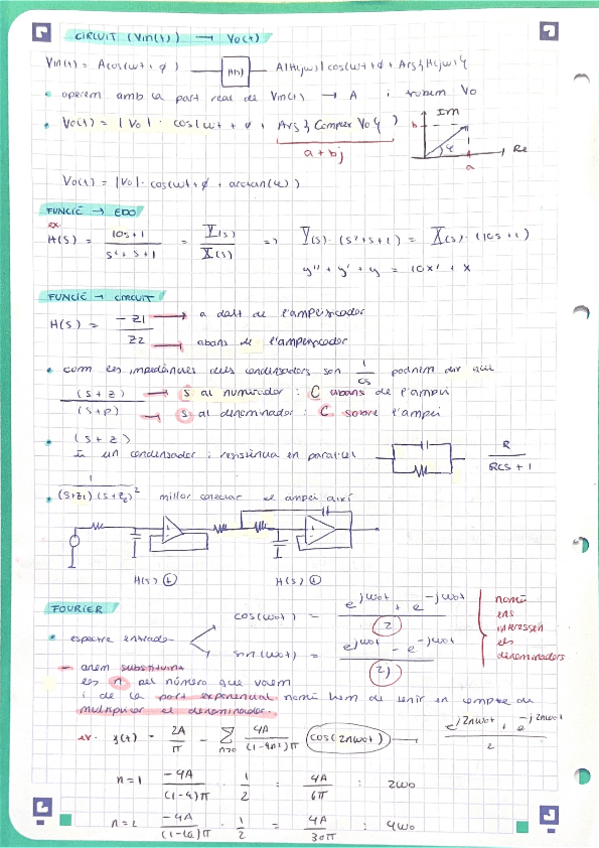 CIRCUIT (Vin(t)) → Vo(t)
Vin(t) = A cos(wt + φ) → H(s) → A|H(jw)| cos(wt + φ + Arg{H(jw)})
• operem amb la part real de Vin(t) → A i trobem Vo
• Vo(t) = |Vo| · cos(wt + φ + Arg{Complex Vo})
a + bj
Im
b
φ
Re
a
Vo(t) = |Vo| · cos(wt + φ + arctan(φ))
FUNCIÓ → EDO
ex
H(s) = 10s+1 / s²+s+1 = Y(s) / X(s) => Y(s) · (s²+s+1) = X(s) · (10s+1)
y'' + y' + y = 10x' + x
FUNCIÓ → CIRCUIT
H(s) = -Z1 / Z2
→ a dalt de l'amplificador
→ abans de l'amplificador
• com les impedàncies dels condensadors son 1/CS podríem dir que
(s+z) → s al numerador : C abans de l'ampli
(s+p) → s al denominador : C sobre l'ampli
• (s+z)
És un condensador i resistència en paral·lel
R / RCS + 1
• 1 / (s+z1)·(s+z2)² millor conectar el ampli així
H(s) 1
H(s) 2
FOURIER
• espectre entrada
cos(wot) = e^jwot + e^-jwot / 2
sin(wot) = e^jwot - e^-jwot / 2j
només
ens
interessen
els
denominadors
– anem substituint
les n pel número que valem
i de la part exponencial només hem de tenir en compte de
multiplicar el denominador.
ex. y(t) = 2A/π - Σ n>0 4A/(1-4n²)π cos(2nwot) → e^j2nwot + e^-j2nwot / 2
n=1 -4A/(1-4)π · 1/2 = 4A/6π : 2wo
n=2 -4A/(1-16)π · 1/2 = 4A/30π : 4wo